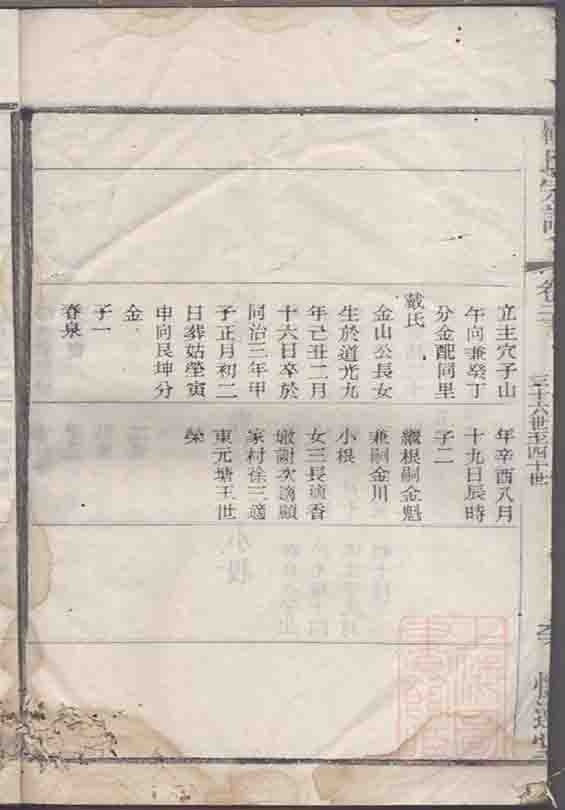 氏宗譜
卷三
三十六世至四十世
立主穴子山
午向兼癸丁
分金配同里
戴氏
金山公長女
生於道光九
年己丑二月
十六日卒於
同治三年甲
子正月初二
日葬姑塋寅
申向艮坤分
金
子一
春泉
年辛酉八月
十九日辰時
子二
繼根嗣金魁
兼嗣金川
小根
女三長適香
墩謝次適顧
家村徐三適
東元塘王世
榮